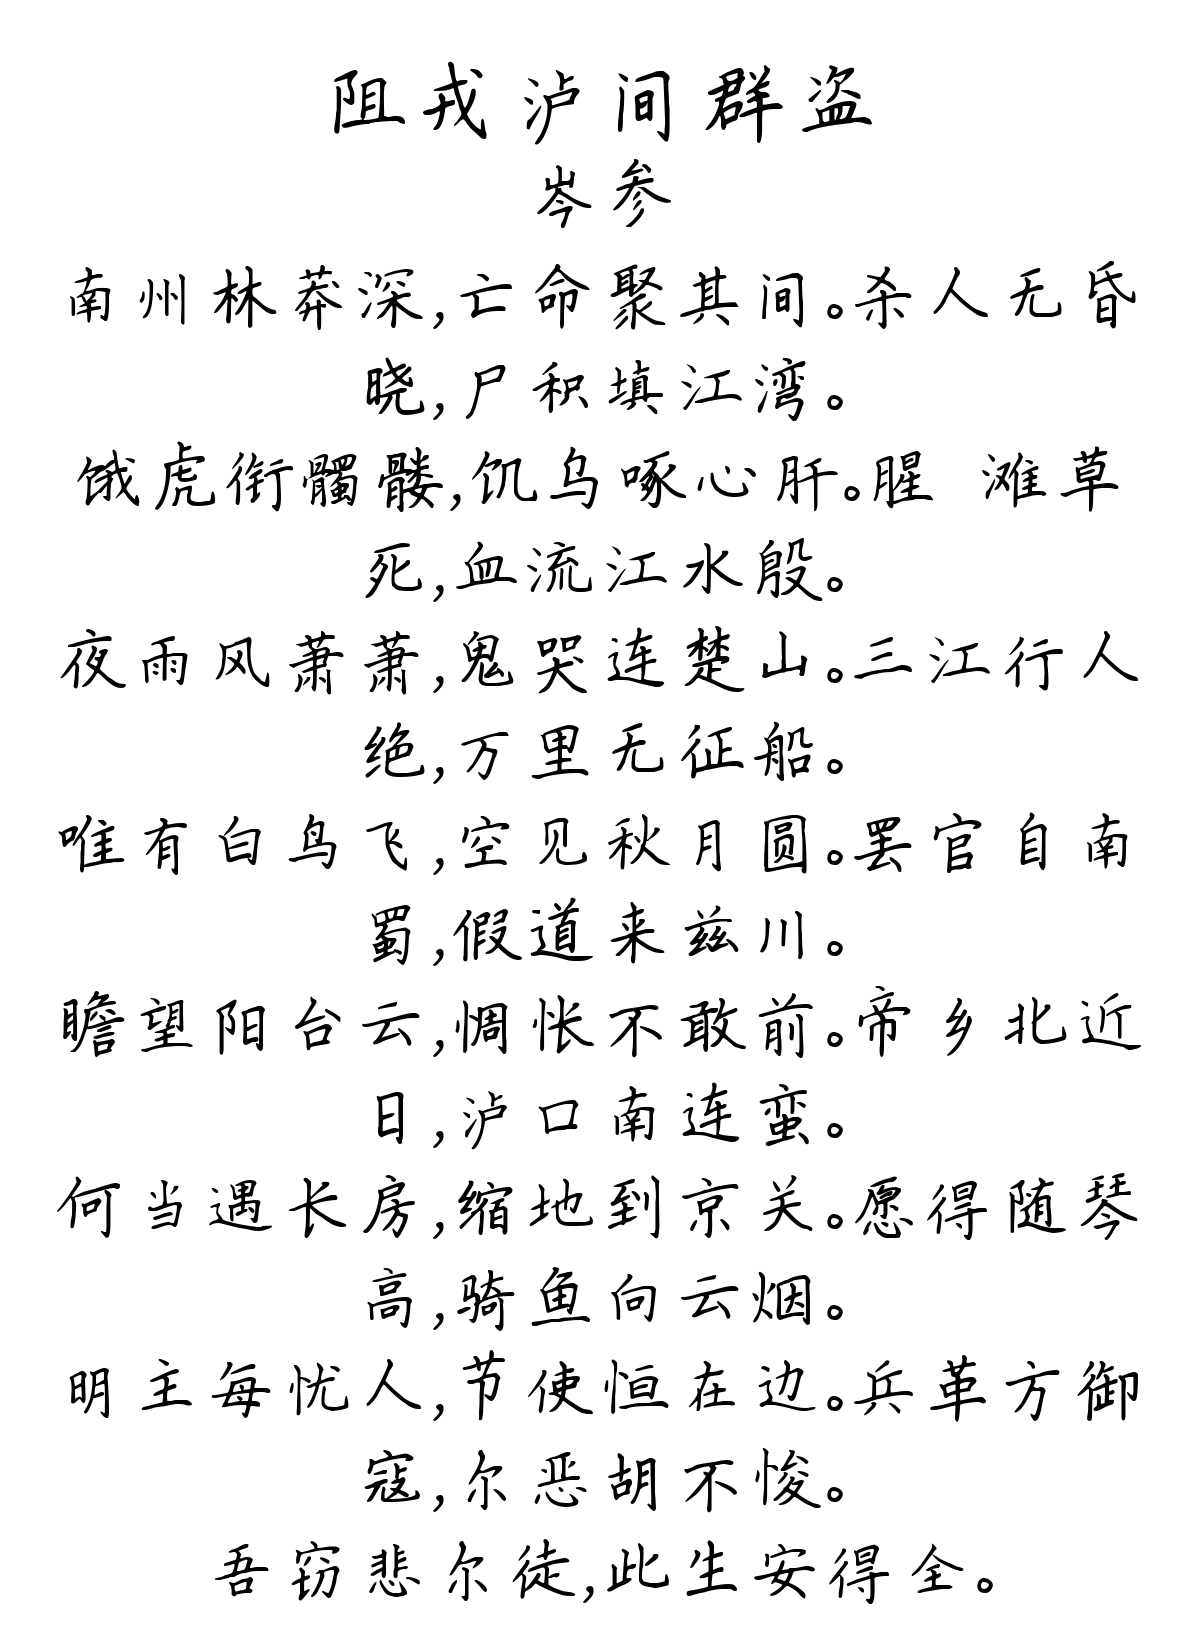 阻戎泸间群盗
岑参
南州林莽深,亡命聚其间。杀人无昏
晓,尸积填江湾。
饿虎衔髑髅,饥乌啄心肝。腥 滩草
死,血流江水殷。
夜雨风萧萧,鬼哭连楚山。三江行人
绝,万里无征船。
唯有白鸟飞,空见秋月圆。罢官自南
蜀,假道来兹川。
瞻望阳台云,惆怅不敢前。帝乡北近
日,泸口南连蛮。
何当遇长房,缩地到京关。愿得随琴
高,骑鱼向云烟。
明主每忧人,节使恒在边。兵革方御
寇,尔恶胡不悛。
吾窃悲尔徒,此生安得全。